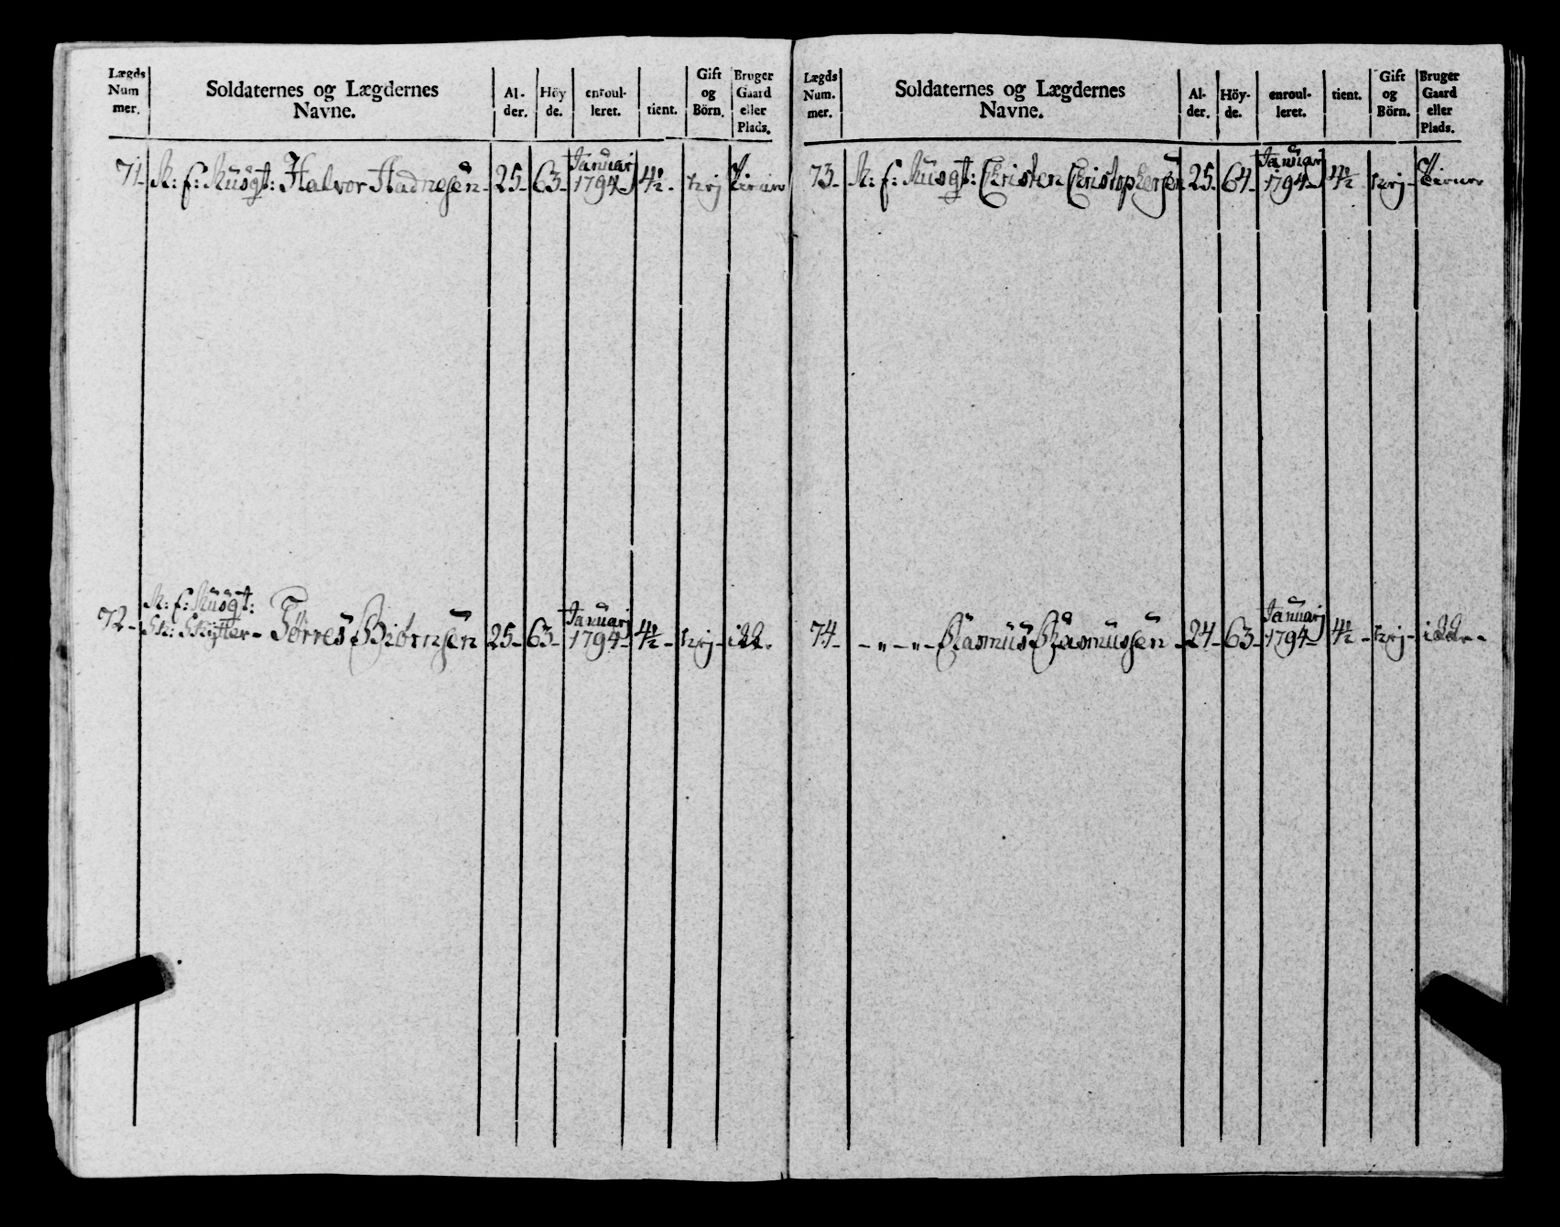 Lægds Num mer. Soldaternes og Lægdernes Navne. Al- der. Höy de. enroul- leret. tient. Gift og Börn. Bruger Gaard eller Plads.
71 N: C: Musqt: Halvor Hadnesen 25 63 Januarj 1794 4½ Nej Tiener
N: C: Musqt:
72 Sk: Skytter Tørres Biørnsen 25 63 Januarj 1794 4½ Nej
Lægds Num. mer. Soldaternes og Lægdernes Navne. Al- der. Höy- de. enroul- leret. tient. Gift og Börn. Bruger Gaard eller Plads.
73 N: C: Musqt: Christen Christophersen 25 64 Januarj 1794 4½ Nej Tiener
74 - " - " - Rasmus Rasmussen 24 63 Januarj 1794 4½ Nej